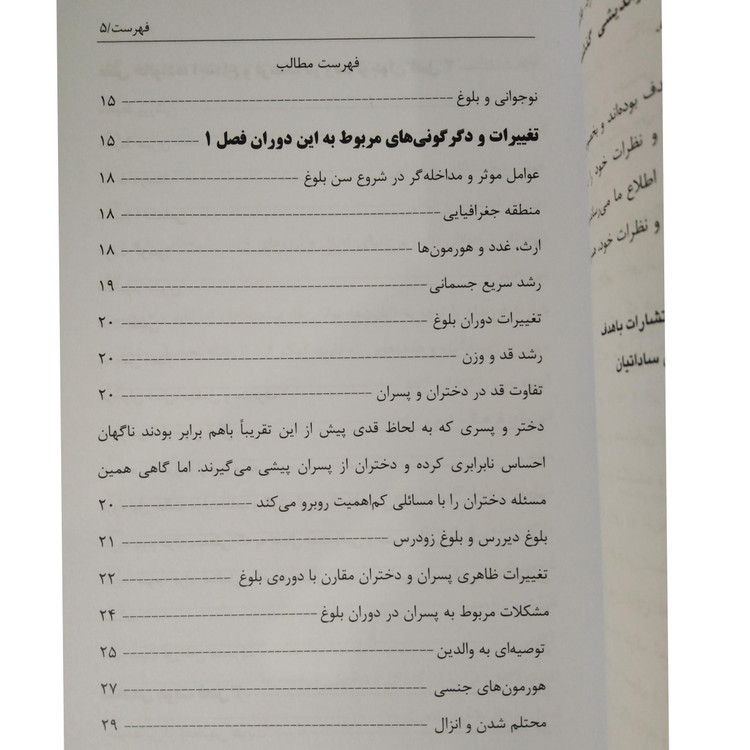 فهرست/۵
فهرست مطالب
نوجوانی و بلوغ ---------- ۱۵
تغییرات و دگرگونی‌های مربوط به این دوران فصل ۱ ---------- ۱۵
عوامل موثر و مداخله‌گر در شروع سن بلوغ ---------- ۱۸
منطقه جغرافیایی ---------- ۱۸
ارث، غدد و هورمون‌ها ---------- ۱۸
رشد سریع جسمانی ---------- ۱۹
تغییرات دوران بلوغ ---------- ۲۰
رشد قد و وزن ---------- ۲۰
تفاوت قد در دختران و پسران ---------- ۲۰
دختر و پسری که به لحاظ قدی پیش از این تقریباً باهم برابر بودند ناگهان
احساس نابرابری کرده و دختران از پسران پیشی می‌گیرند. اما گاهی همین
مسئله دختران را با مسائلی کم‌اهمیت روبرو می‌کند ---------- ۲۰
بلوغ دیررس و بلوغ زودرس ---------- ۲۱
تغییرات ظاهری پسران و دختران مقارن با دوره‌ی بلوغ ---------- ۲۲
مشکلات مربوط به پسران در دوران بلوغ ---------- ۲۴
توصیه‌ای به والدین ---------- ۲۵
هورمون‌های جنسی ---------- ۲۷
محتلم شدن و انزال ---------- ۲۹
بوده‌اند و
و نظرات خود
اطلاع ما
و نظرات خود،
باهدف
ساداتیان